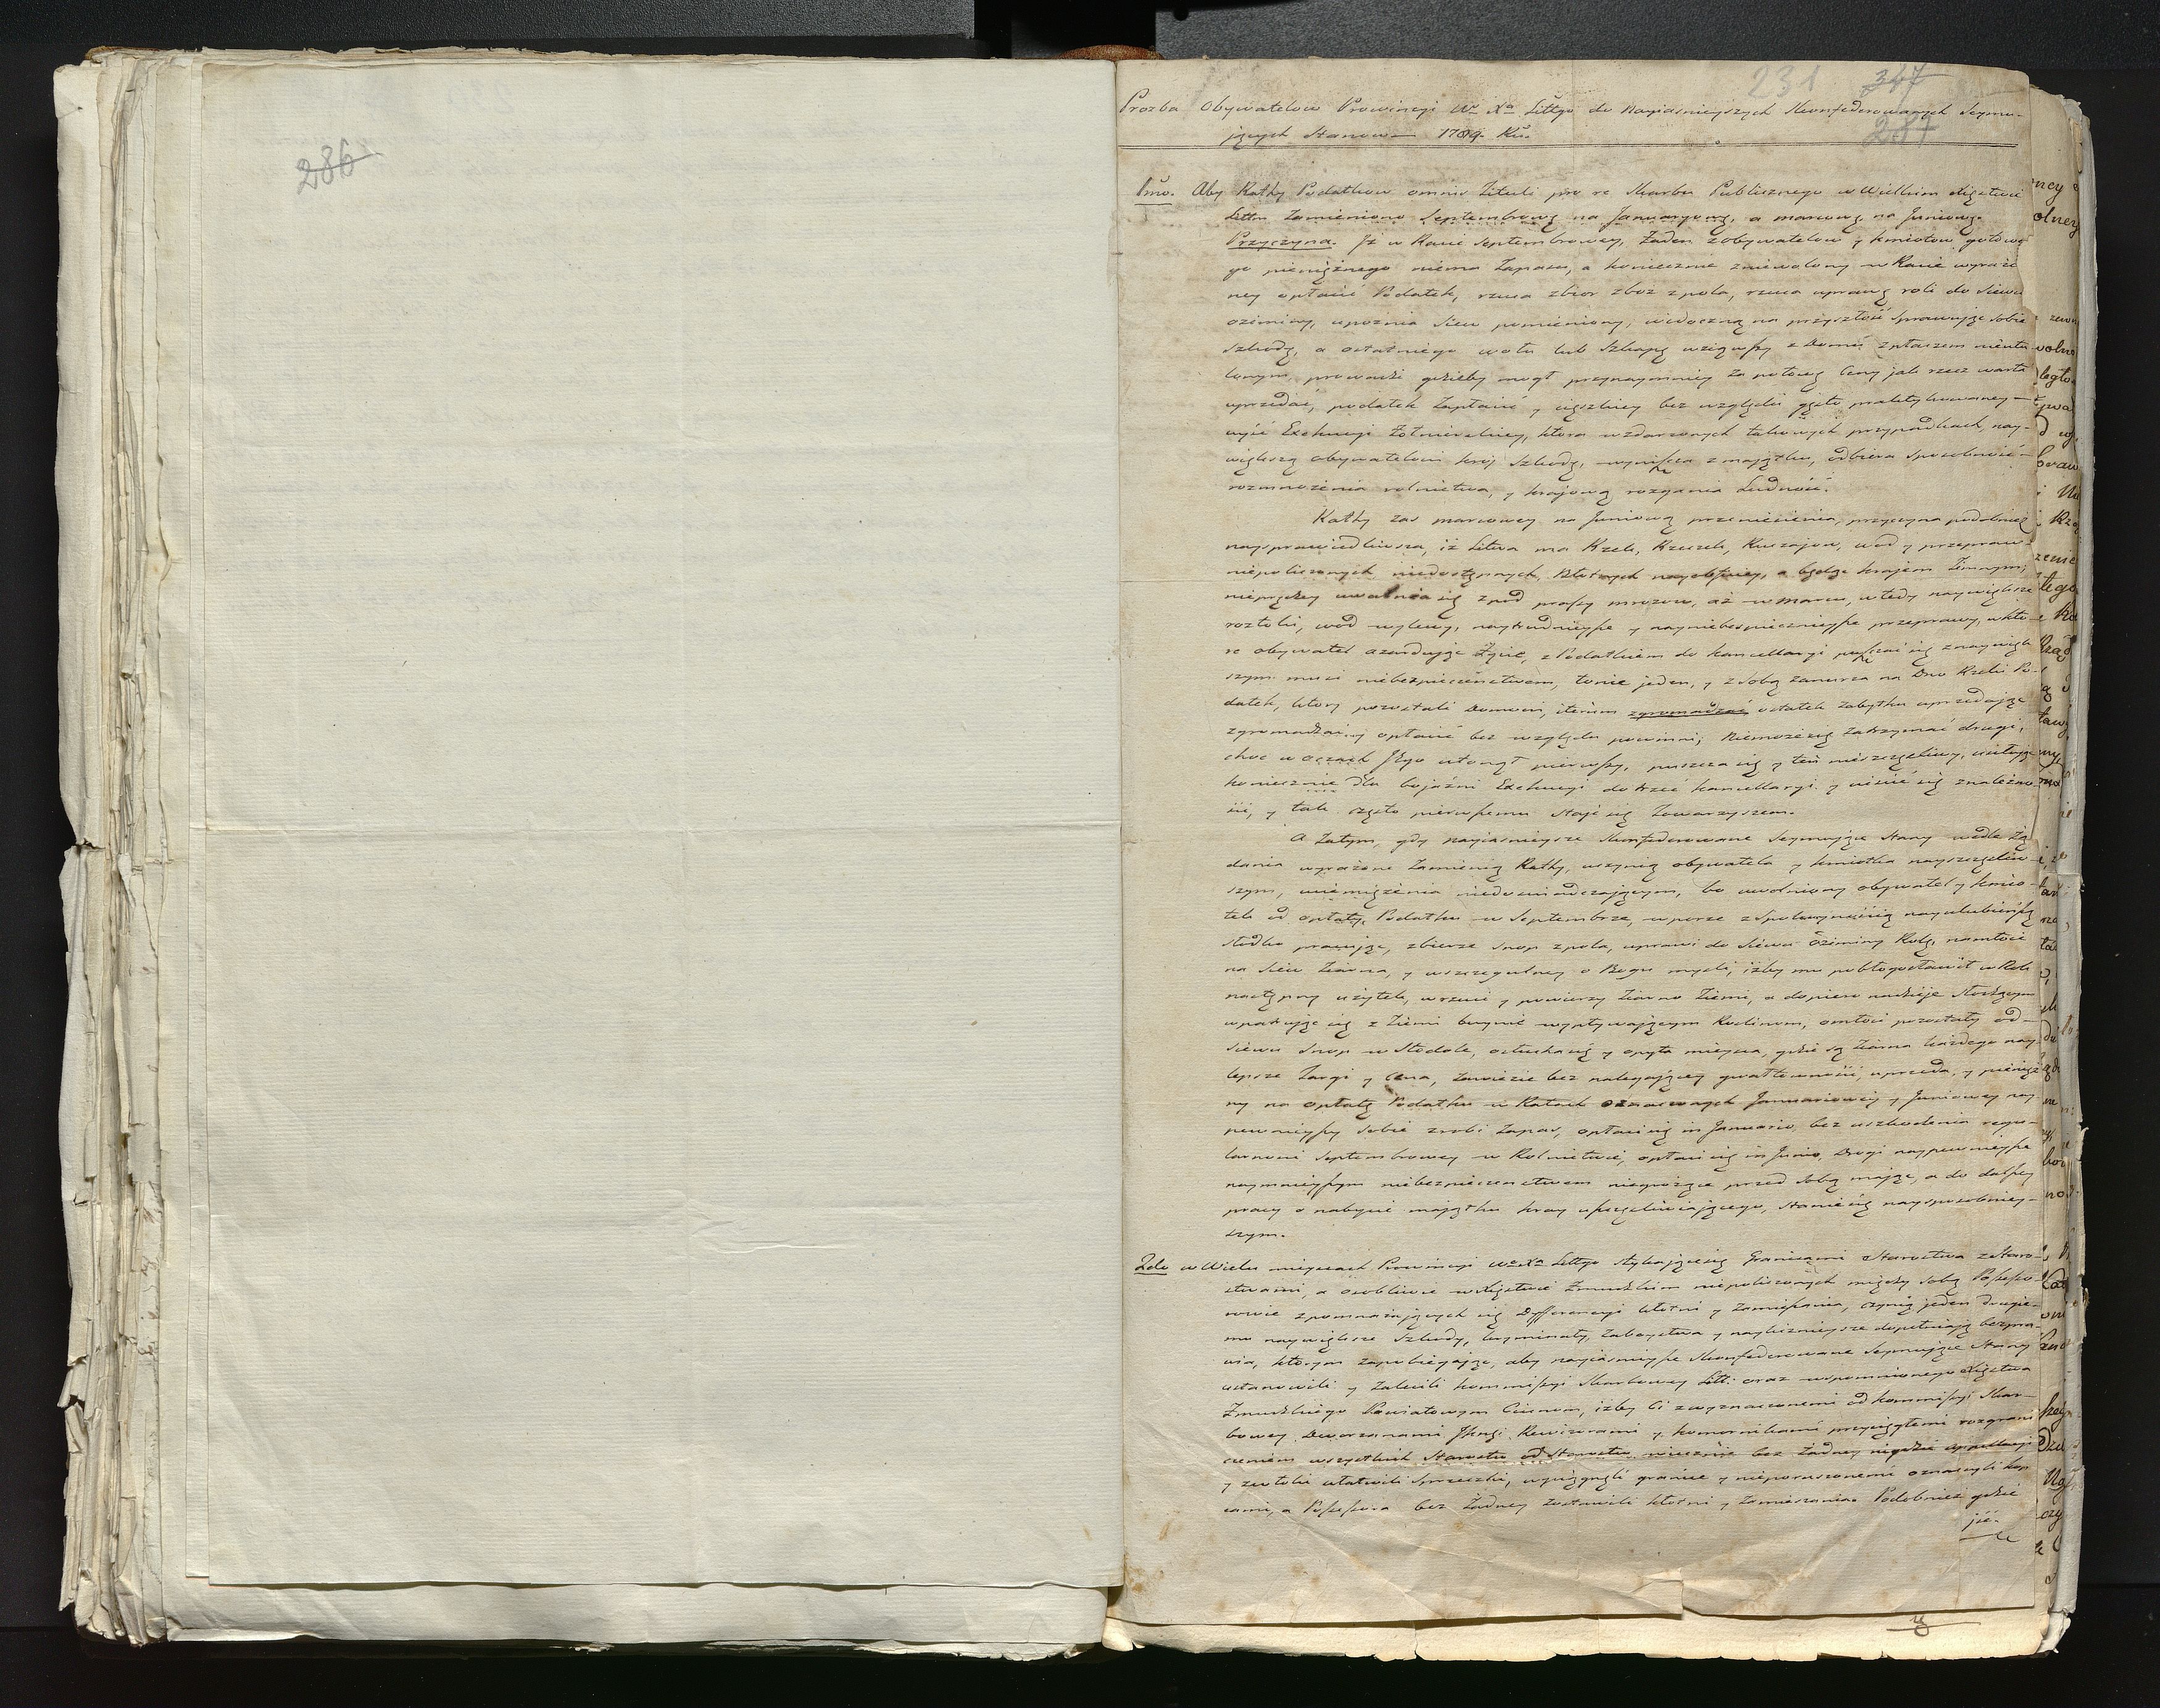 286
231 347
287
Prozba Obywatelow Prowincyi Wo Xa Littgo do Nayiasnieyszych Skonfederowanych Seymu-
jących Stanow 1789 Ru.
1mo. Aby Ratty Podatkow omnis Tituli pro re Skarbu Publicznego w Wielkim Xięstwie
Littm Zamieniono Septembrową na Januaryową, a marcową na Juniową.
Przyczyna. Iż w Racie Septembrowey, Żaden z obywatelow y kmiotow gotowe-
go pieniężnego niema Zapasu, a koniecznie zniewolony w Racie wyrażo
ney opłacić Podatek, rzuca zbior zboż z pola, rzuca uprawę roli do siewu
oziminy, upoznia siew pomieniony, widoczną na przyszłość sprawując sobie
szkodę, a ostatniego wołu lub Szkapę wziąwszy z Domu z płaczem nieutu
lonym, prowadzi gdzieby mogł przynaymniey za połowę Ceny jak rzecz warta
uprzedać, podatek Zapłacić y ciężkiey bez względu gęsto praktykowaney
ujść Exekucyi Żołnierskiey, ktora w zdarzonych takowych przypadkach, nay-
większą obywatelom kroj szkodę, wyniszcza z majątku, odbiera sposobność
rozmnożenia rolnictwa, y krajową rozgania Ludność.
Ratty zas marcowey na Juniową przeniesienia, przyczyna podobnież
naysprawiedliwsza, iż Litwa ma Rzek, Rzeczek, Ruczajow, wod y przepraw
niepoliczonych niedostępnych, Błotnych nayobficiey, a będąc krajem Zimnym,
nieprędzey uwalnia się z pod prassy mrozow, aż w marcu, wtedy naywiększe
roztoki, wod wylewy, naytrudnieysze y nayniebespiecznieysze przeprawy, w kto-
re obywatel azardując Życie, z Podatkiem do kancellaryi puszczać się z naywięk
szym musi niebezpieczeństwem, tonie jeden, y z sobą zanurza na Dno Rzeki Po-
datek, ktory pozostali Domowi, iterum zgromadzać ostatek zabytku uprzedając
zgromadzaiąc opłacić bez względu powinni; Niemoże się zatrzymać drugi,
choć w oczach Jego utonął pierwszy, puszcza się y ten nieszczęśliwy, usiłując
koniecznie dla bojaźni Exekucyi dotrzeć kancellaryi y uiścić się znależno
ści, y tak często pierwszemu staje się Towarzyszem.
A Zatym, gdy nayiasnieysze Skonfederowane Seymujące Stany wedle żą
dania wyrażone Zamienią Ratty, uczynią obywatela y kmiotka nayszczęśliw-
szym, uciemiężenia niedoswiadczającym, bo uwolniony obywatel y kmio-
tek od opłaty Podatku w Septembrze, w porze z spokoynością nayulubieńszą
słodko pracując, zbierze snop z pola, uprawi do siewu oziminy Rolę, namłoci
na siew Ziarna, y wszczegulney o Bogu myśli, iżby mu pobłogosławił w Rok
następny użytek, wrzuci y powierzy Ziarno Ziemi, a dopiero nadzieje słodzącym
wpatrując się z Ziemi buynie wypływającym Roslinom, omłoci pozostały od
siewu Snop w Stodole, osłucha się y opyta mieysca, gdzie są Ziarna każdego nay-
lepsze Targi y Cena, zawiezie bez nalegającey gwałtowności, uprzeda, y pienięż
ny na opłatę Podatku w Ratach oznaczonych Januariowey y Juniowey nay-
pewnieyszy sobie zrobi zapas, opłaci się in Januario, bez uszkodzenia regu-
larnosci Septembrowey w Rolnictwie, opłaci się in Junio, Drogi naypewnieysze
naymnieyszym niebezpieczenstwem niegrożące przed sobą mając, a do dalszey
pracy o nabycie majątku kray uszczęśliwiającego, stanie się naysposobniey-
szym.
2do w Wielu mieyscach Prowincyi Wo Xa Littgo stykające się Granicami Starostwa z Staro-
stwami, a osobliwie w Xięstwie Żmudzkim niepoliczonych między sobą Possesso-
rowie z pomnażających się Dyfferencyi kłotni y Zamieszania, czynią jeden drugie-
mu naywiększe szkody, kryminały, zaboystwa y nayliczniejsze dopełniają bezpra-
wia, ktorym zapobiegając, aby nayiasnieysze Skonfederowane Seymujące Stany
ustanowili y zalecili kommissyi Skarbowey Litt: oraz wspomnionego Xięstwa
Żmudzkiego Powiatowym Ciwunom, iżby Ci z wyznaczonemi od kommissyi Skar-
bowey Dworzanami Jkmści Rewizorami y komornikami przysięgłemi rozgrani
czeniem wszystkich Starostw od Starostw wiecznie bez żadney nigdzie appellacyi
y zwłoki ułatwili sprzeczki, wyciągnęli granice y nieporuszonemi oznaczyli kop
cami, a Possessora bez Żadney zostawili kłotni y Zamieszania. Podobnież gdzie